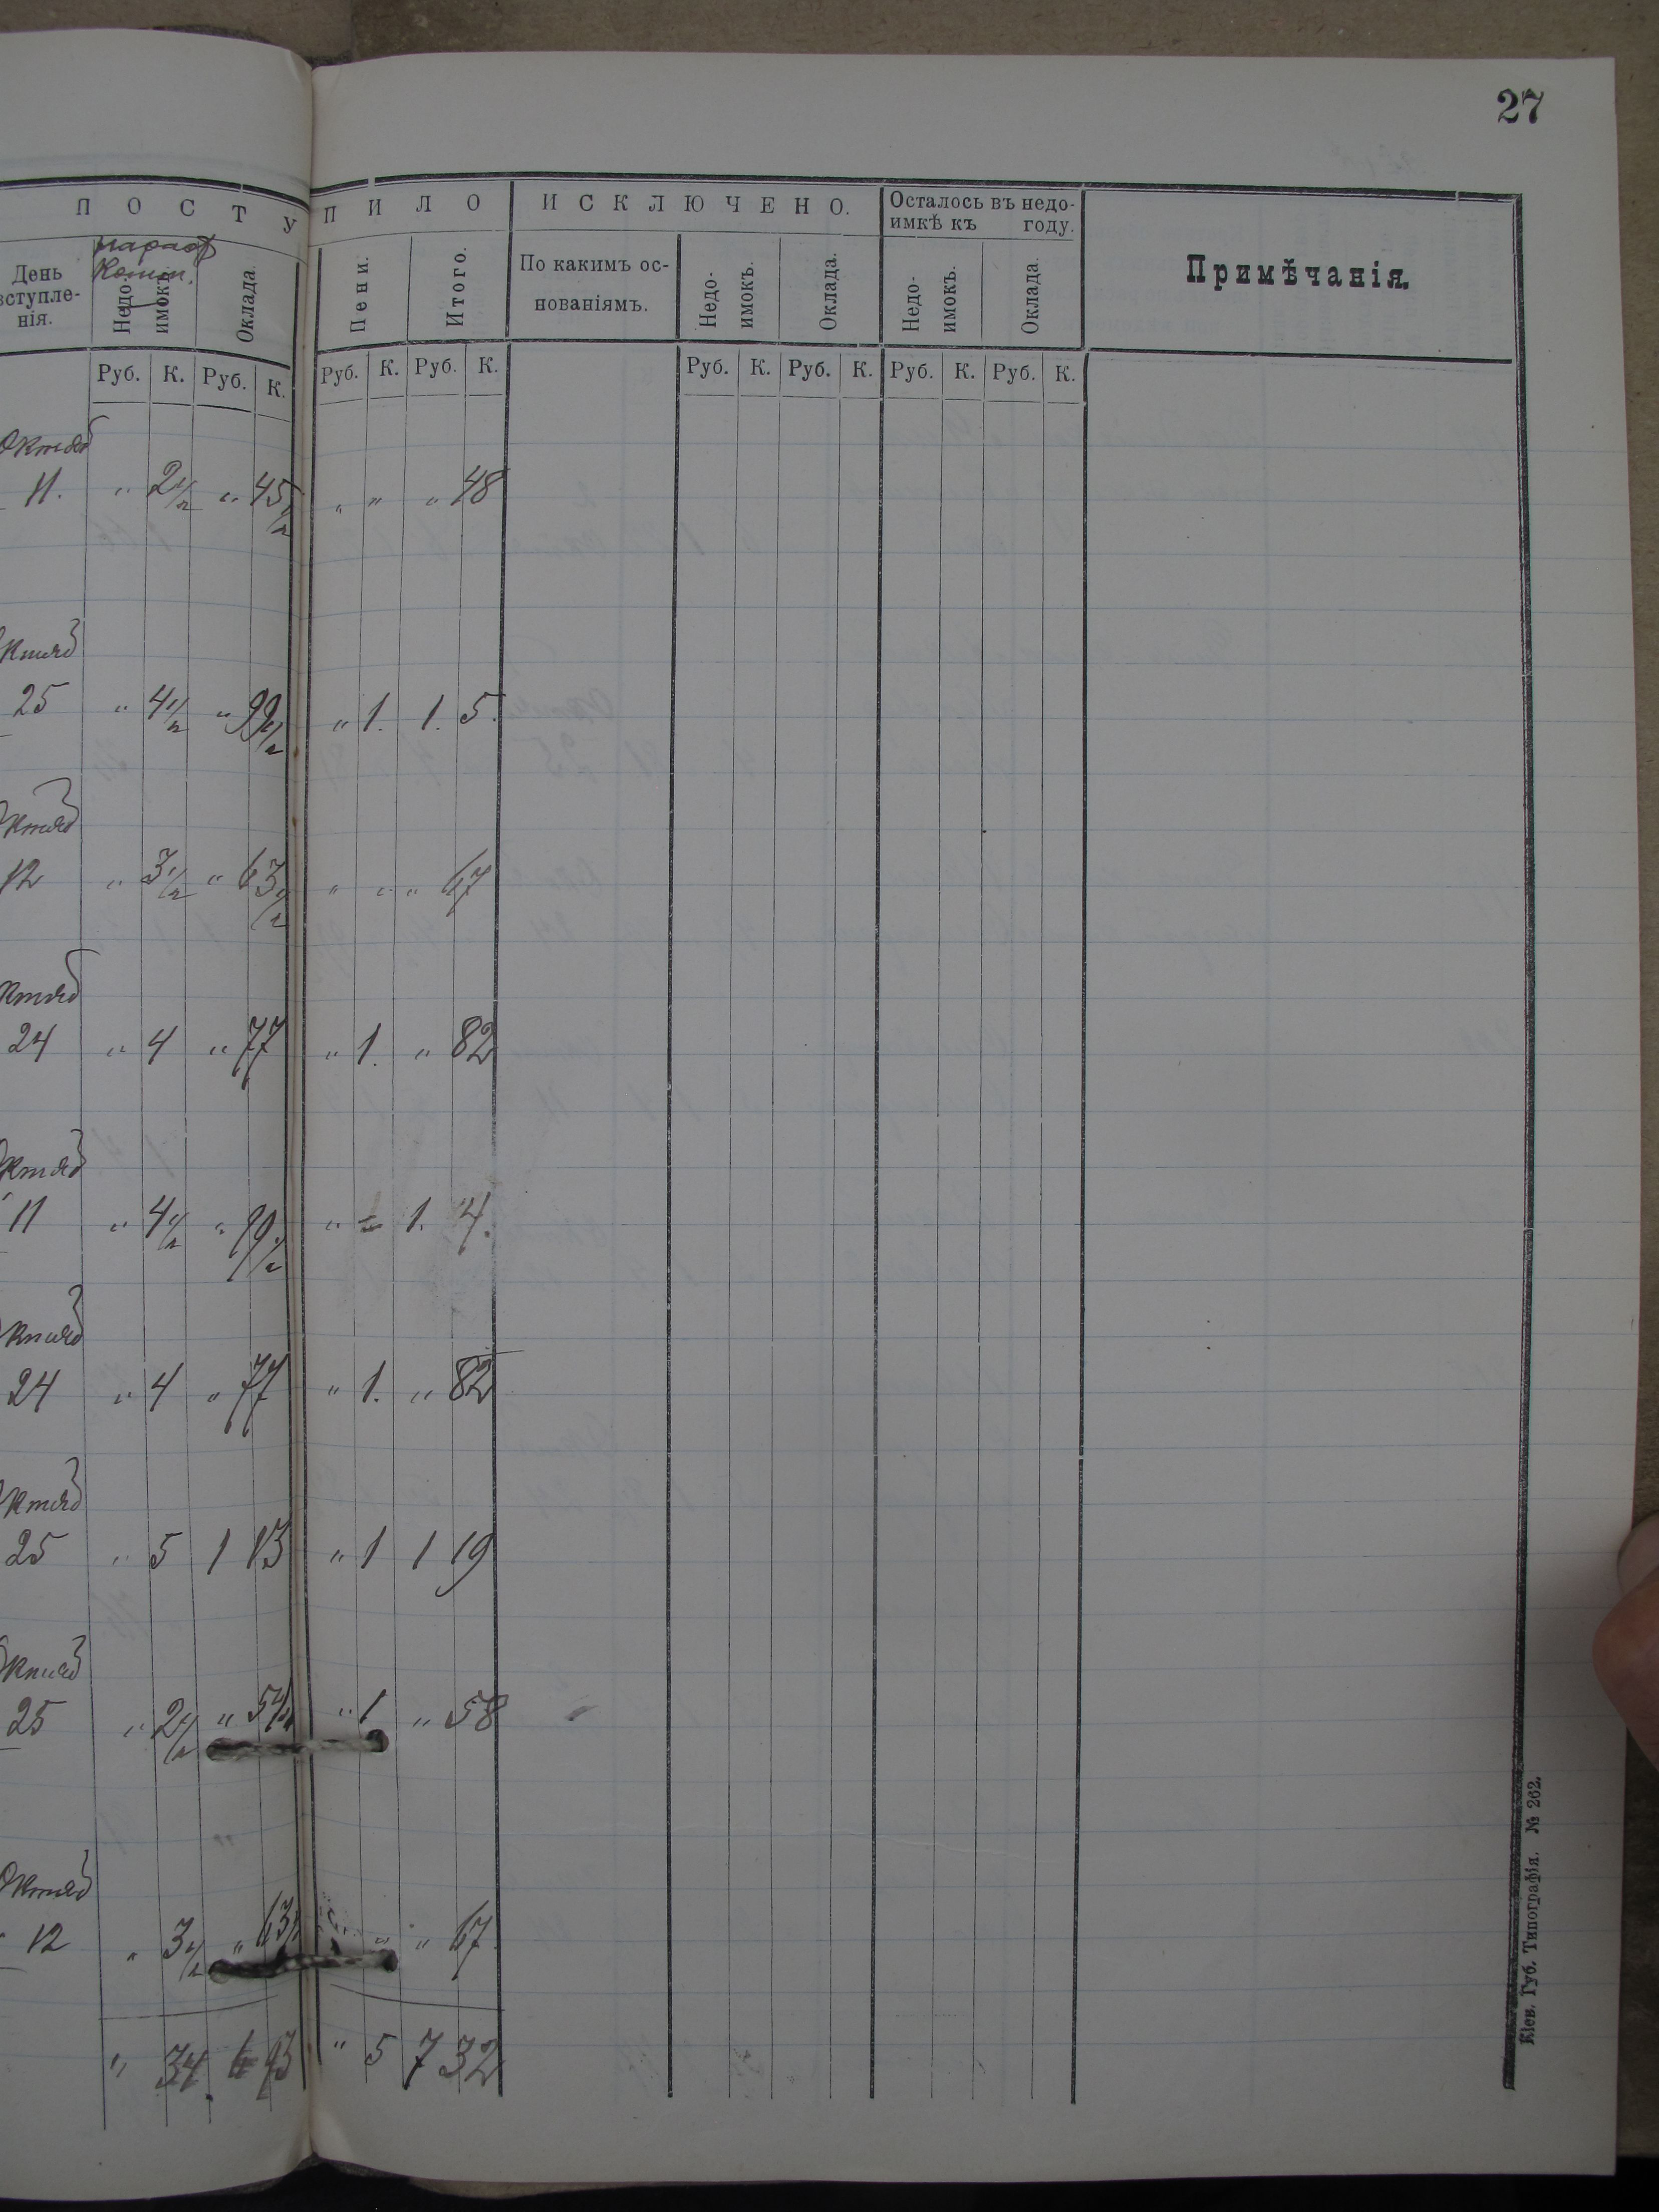 27
П О С Т У П И Л О И С К Л Ю Ч Е Н О. Осталось въ недо-
имкѣ къ году.
Примѣчанія.
День
вступле-
нія. Недо-
имокъ. Оклада. Пени. Итого. По какимъ ос-
нованіямъ. Недо-
имокъ. Оклада. Недо-
имокъ. Оклада.
Руб. К. Руб. К. Руб. К. Руб. К. Руб. К. Руб. К. Руб. К. Руб. К.
Октяб
11. " 2 1/2 " 45 1/2 " " " 48
Октяб
25 " 4 1/2 " 99 1/2 " 1. 1. 5.
Октяб
12 " 3 1/2 " 63 1/2 " " " 67
Октяб
24 " 4 " 77 " 1. " 82
Октяб
11 " 4 1/2 " 99 1/2 " 1. 4.
Октяб
24 " 4 " 77 " 1. " 82
Октяб
25 " 5 1 13 " 1 1 19
Октяб
25 " 2 1/2 " 54 1/2 " 1 " 58
Октяб
12 " 3 1/2 " 63 1/2 " " 67
" 34. 6 93 " 5 7 32
Кіев. Губ. Типографія. № 262.